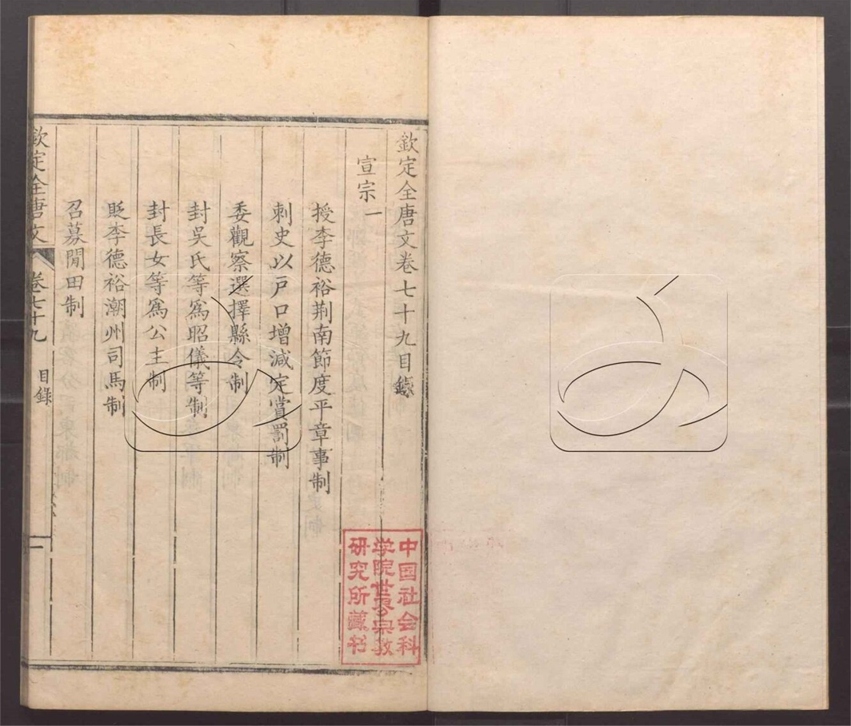 欽定全唐文卷七十九目錄
宣宗一
授李德裕荊南節度平章事制
刺史以戸口增減定賞罰制
委觀察選擇縣令制
封吳氏等爲昭儀等制
封長女等爲公主制
貶李德裕潮州司馬制
召募閒田制
欽定全唐文 卷七十九 目錄 一
中国社会科
学院世界宗教
研究所藏书